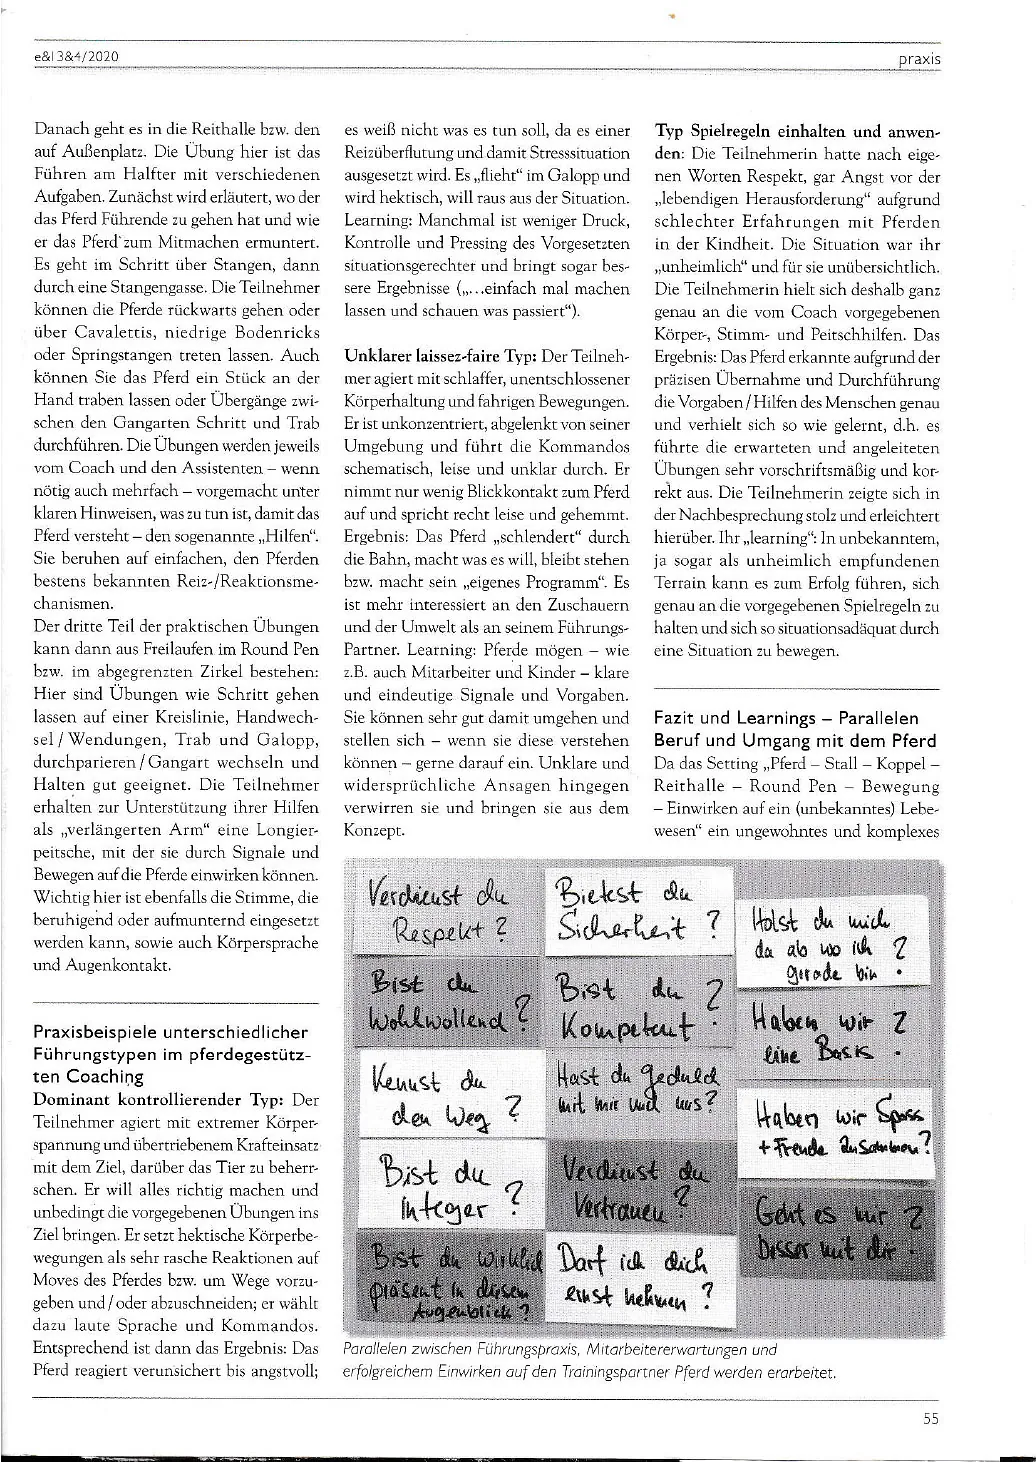 e&l 3&4/2020
praxis
Danach geht es in die Reithalle bzw. den
auf Außenplatz. Die Übung hier ist das
Führen am Halfter mit verschiedenen
Aufgaben. Zunächst wird erläutert, wo der
das Pferd Führende zu gehen hat und wie
er das Pferd zum Mitmachen ermuntert.
Es geht im Schritt über Stangen, dann
durch eine Stangengasse. Die Teilnehmer
können die Pferde rückwarts gehen oder
über Cavalettis, niedrige Bodenricks
oder Springstangen treten lassen. Auch
können Sie das Pferd ein Stück an der
Hand traben lassen oder Übergänge zwi-
schen den Gangarten Schritt und Trab
durchführen. Die Übungen werden jeweils
vom Coach und den Assistenten – wenn
nötig auch mehrfach – vorgemacht unter
klaren Hinweisen, was zu tun ist, damit das
Pferd versteht – den sogenannte „Hilfen“.
Sie beruhen auf einfachen, den Pferden
bestens bekannten Reiz-/Reaktionsme-
chanismen.
Der dritte Teil der praktischen Übungen
kann dann aus Freilaufen im Round Pen
bzw. im abgegrenzten Zirkel bestehen:
Hier sind Übungen wie Schritt gehen
lassen auf einer Kreislinie, Handwech-
sel / Wendungen, Trab und Galopp,
durchparieren / Gangart wechseln und
Halten gut geeignet. Die Teilnehmer
erhalten zur Unterstützung ihrer Hilfen
als „verlängerten Arm“ eine Longier-
peitsche, mit der sie durch Signale und
Bewegen auf die Pferde einwirken können.
Wichtig hier ist ebenfalls die Stimme, die
beruhigend oder aufmunternd eingesetzt
werden kann, sowie auch Körpersprache
und Augenkontakt.
Praxisbeispiele unterschiedlicher
Führungstypen im pferdegestütz-
ten Coaching
Dominant kontrollierender Typ: Der
Teilnehmer agiert mit extremer Körper-
spannung und übertriebenem Krafteinsatz
mit dem Ziel, darüber das Tier zu beherr-
schen. Er will alles richtig machen und
unbedingt die vorgegebenen Übungen ins
Ziel bringen. Er setzt hektische Körperbe-
wegungen als sehr rasche Reaktionen auf
Moves des Pferdes bzw. um Wege vorzu-
geben und / oder abzuschneiden; er wählt
dazu laute Sprache und Kommandos.
Entsprechend ist dann das Ergebnis: Das
Pferd reagiert verunsichert bis angstvoll;
es weiß nicht was es tun soll, da es einer
Reizüberflutung und damit Stresssituation
ausgesetzt wird. Es „flieht“ im Galopp und
wird hektisch, will raus aus der Situation.
Learning: Manchmal ist weniger Druck,
Kontrolle und Pressing des Vorgesetzten
situationsgerechter und bringt sogar bes-
sere Ergebnisse („…einfach mal machen
lassen und schauen was passiert“).
Unklarer laissez-faire Typ: Der Teilneh-
mer agiert mit schlaffer, unentschlossener
Körperhaltung und fahrigen Bewegungen.
Er ist unkonzentriert, abgelenkt von seiner
Umgebung und führt die Kommandos
schematisch, leise und unklar durch. Er
nimmt nur wenig Blickkontakt zum Pferd
auf und spricht recht leise und gehemmt.
Ergebnis: Das Pferd „schlendert“ durch
die Bahn, macht was es will, bleibt stehen
bzw. macht sein „eigenes Programm“. Es
ist mehr interessiert an den Zuschauern
und der Umwelt als an seinem Führungs-
Partner. Learning: Pferde mögen – wie
z.B. auch Mitarbeiter und Kinder – klare
und eindeutige Signale und Vorgaben.
Sie können sehr gut damit umgehen und
stellen sich – wenn sie diese verstehen
können – gerne darauf ein. Unklare und
widersprüchliche Ansagen hingegen
verwirren sie und bringen sie aus dem
Konzept.
Typ Spielregeln einhalten und anwen-
den: Die Teilnehmerin hatte nach eige-
nen Worten Respekt, gar Angst vor der
„lebendigen Herausforderung“ aufgrund
schlechter Erfahrungen mit Pferden
in der Kindheit. Die Situation war ihr
„unheimlich“ und für sie unübersichtlich.
Die Teilnehmerin hielt sich deshalb ganz
genau an die vom Coach vorgegebenen
Körper-, Stimm- und Peitschhilfen. Das
Ergebnis: Das Pferd erkannte aufgrund der
präzisen Übernahme und Durchführung
die Vorgaben / Hilfen des Menschen genau
und verhielt sich so wie gelernt, d.h. es
führte die erwarteten und angeleiteten
Übungen sehr vorschriftsmäßig und kor-
rekt aus. Die Teilnehmerin zeigte sich in
der Nachbesprechung stolz und erleichtert
hierüber. Ihr „learning“: In unbekanntem,
ja sogar als unheimlich empfundenen
Terrain kann es zum Erfolg führen, sich
genau an die vorgegebenen Spielregeln zu
halten und sich so situationsadäquat durch
eine Situation zu bewegen.
Fazit und Learnings – Parallelen
Beruf und Umgang mit dem Pferd
Da das Setting „Pferd – Stall – Koppel –
Reithalle – Round Pen – Bewegung
– Einwirken auf ein (unbekanntes) Lebe-
wesen“ ein ungewohntes und komplexes
Verdienst du
Respekt?
Bist du
Wohlwollend?
Kennst du
den Weg?
Bist du
integer?
Bist du wirklich
präsent in diesem
Augenblick?
Bietest du
Sicherheit?
Bist du
Kompetent?
Hast du geduld
mit mir und uns?
Verdienst du
Vertrauen?
Darf ich dich
ernst nehmen?
Holst du mich
da ab wo ich
gerade bin?
Haben wir
eine Basis?
Haben wir Spass
+ Freude zusammen?
Geht es mir
besser mit dir?
Parallelen zwischen Führungspraxis, Mitarbeitererwartungen und
erfolgreichem Einwirken auf den Trainingspartner Pferd werden erarbeitet.
55